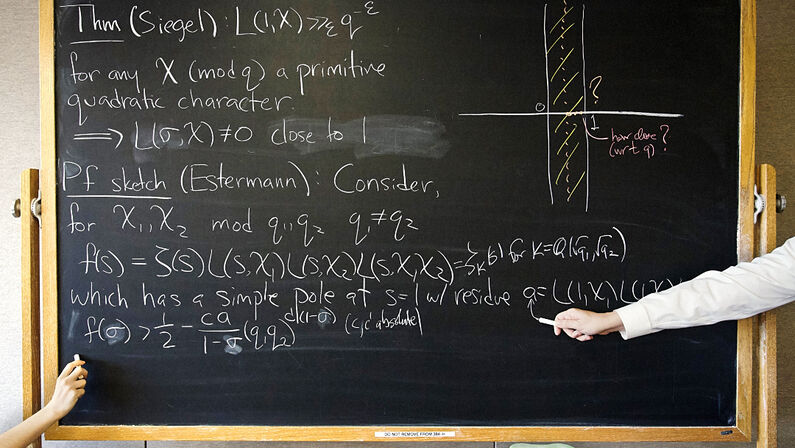 Thm (Siegel): L(1,χ) ≫_ε q^{-ε}
for any χ (mod q) a primitive
quadratic character.
⟹ L(σ,χ) ≠ 0 close to 1
0
?
1
how close ?
(wrt q)
Pf sketch (Estermann): Consider,
for χ₁, χ₂ mod q₁, q₂ q₁ ≠ q₂
f(s) = ζ(s) L(s,χ₁) L(s,χ₂) L(s,χ₁χ₂) = ζ_K(s) for K = Q(√q₁, √q₂)
which has a simple pole at s=1 w/ residue a = L(1,χ₁) L(1,
f(σ) > 1/2 - ca/(1-σ) (q₁q₂)^{c'(1-σ)} (c,c' absolute)
DO NOT REMOVE FROM